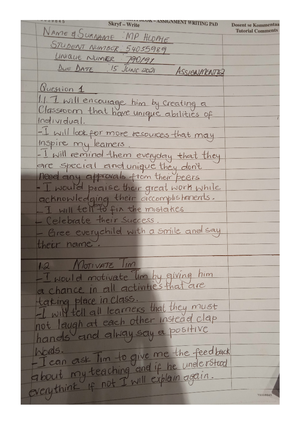 ASSIGNMENT WRITING PAD
Skryf – Write
Dosent se Kommentaar
Tutorial Comments
NAME & SURNAME
STUDENT NUMBER 54055989
UNIQUE NUMBER
DUE DATE 15 JUNE 2021 ASSIGNMENT 02
Question 1
1.1 I will encourage him by creating a
Classroom that have unique abilities of
individual.
- I will look for more resources that may
inspire my learners.
- I will remind them everyday that they
are special and unique they don't
need any approvals from their peers
- I would praise their great work while
acknowledging their accomplishments.
- I will tell to fix the mistakes
- Celebrate their Success
- Gree everychild with a smile and say
their name.
1.2 Motivate Tim
- I would motivate Tim by giving him
a chance in all activities that are
taking place in class.
- I will tell all learners that they must
not laugh at each other instead clap
hands and alway say a positive
words.
- I can ask Tim to give me the feedback
about my teaching and if he understood
everything if not I will explain again.